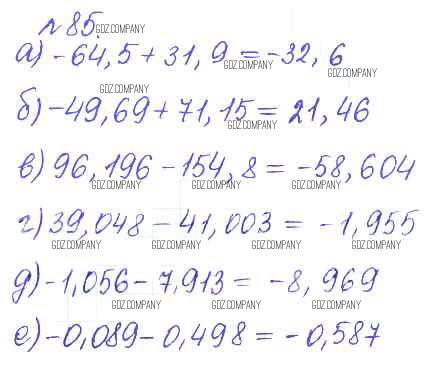 №85. GDZ.COMPANY
а) -64,5 + 31,9 = -32,6
GDZ.COMPANY GDZ.COMPANY
GDZ.COMPANY
б) -49,69 + 71,15 = 21,46
GDZ.COMPANY
в) 96,196 - 154,8 = -58,604
GDZ.COMPANY GDZ.COMPANY GDZ.COMPANY
г) 39,048 - 41,003 = -1,955
GDZ.COMPANY GDZ.COMPANY GDZ.COMPANY GDZ.COMPANY
д) -1,056 - 7,913 = -8,969
GDZ.COMPANY GDZ.COMPANY GDZ.COMPANY
е) -0,089 - 0,498 = -0,587